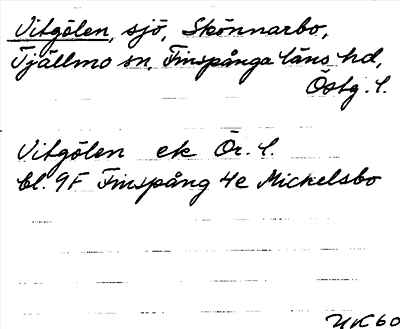 Vitgölen, sjö, Skönnarbo,
Tjällmo sn, Finspånga läns hd,
Östg. l.
Vitgölen ek Ör. l.
bl. 9F Finspång 4e Mickelsbo
NK60